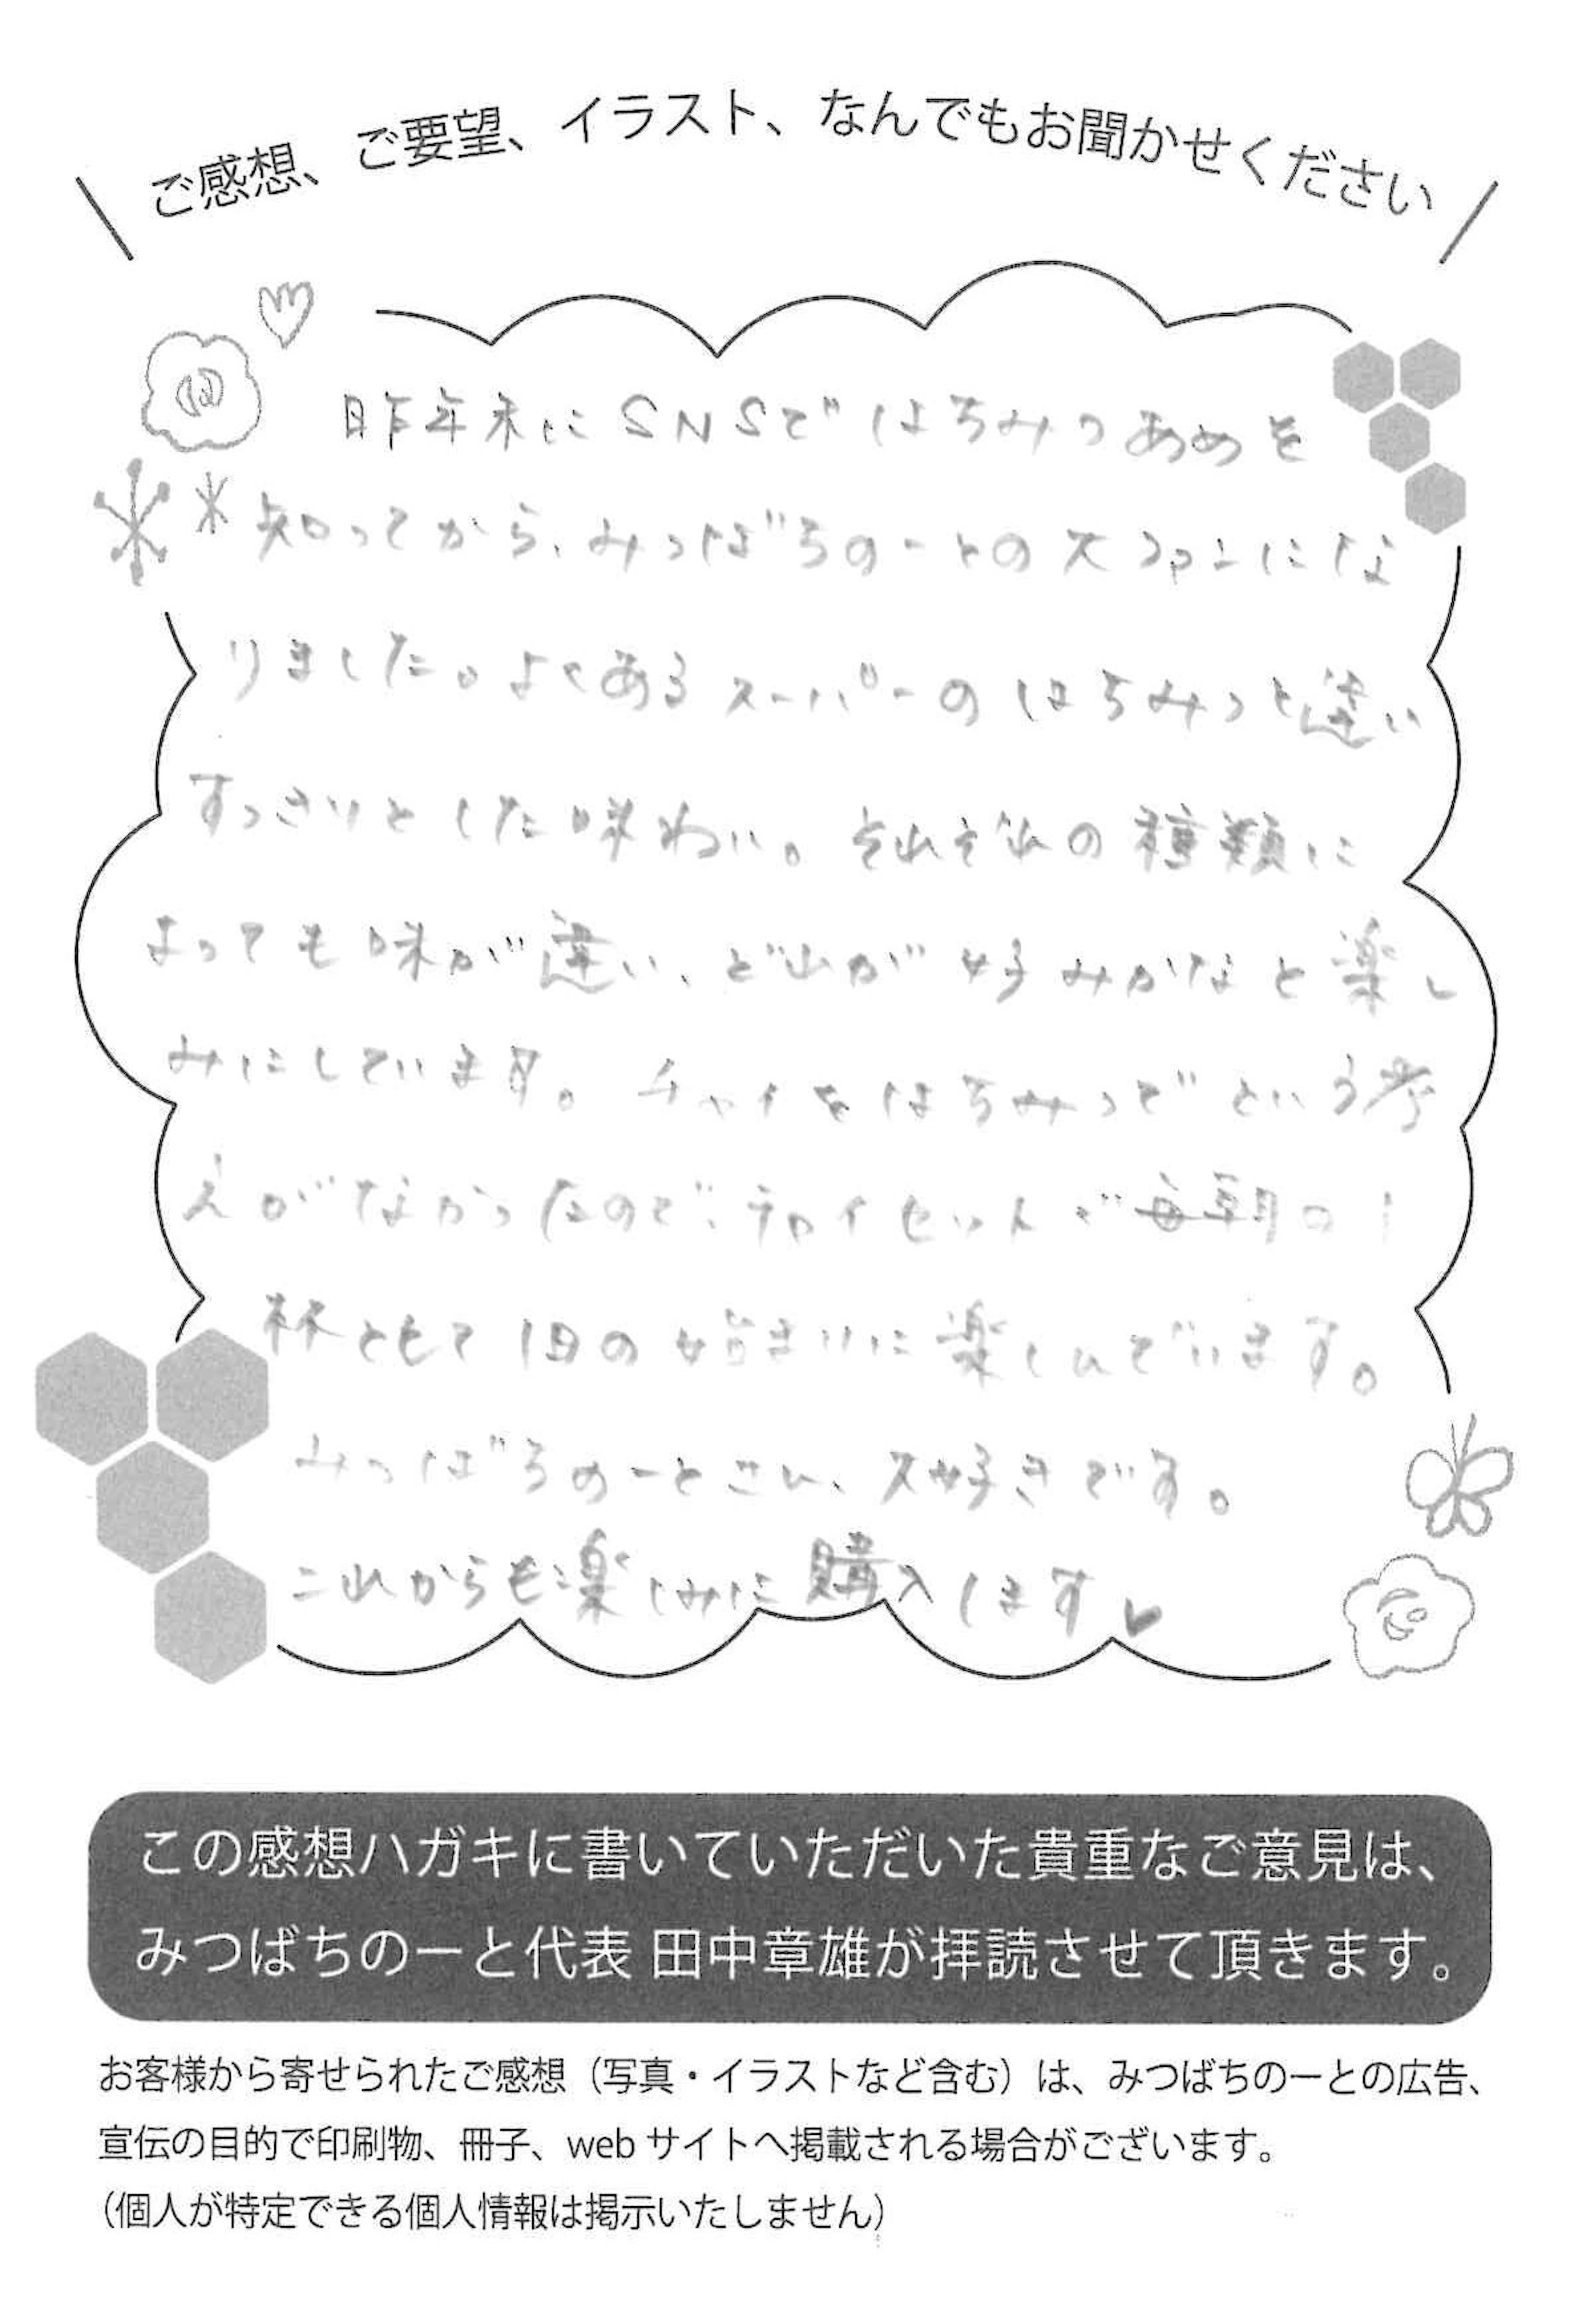 ご感想、ご要望、イラスト、なんでもお聞かせください
昨年末にSNSではちみつあめを
知ってから、みつばちのーとの大ファンにな
りました。よくあるスーパーのはちみつと違い
すっきりとした味わい。それぞれの種類に
よっても味が違い、どれが好みかなと楽し
みにしています。チャイをはちみつでという考
えがなかったので、チャイセットが毎朝の1
杯ともて1日の始まりに楽しんでいます。
みつばちのーとさん、大好きです。
これからも楽しみに購入します♥
この感想ハガキに書いていただいた貴重なご意見は、
みつばちのーと代表 田中章雄が拝読させて頂きます。
お客様から寄せられたご感想（写真・イラストなど含む）は、みつばちのーとの広告、
宣伝の目的で印刷物、冊子、web サイトへ掲載される場合がございます。
（個人が特定できる個人情報は掲示いたしません）